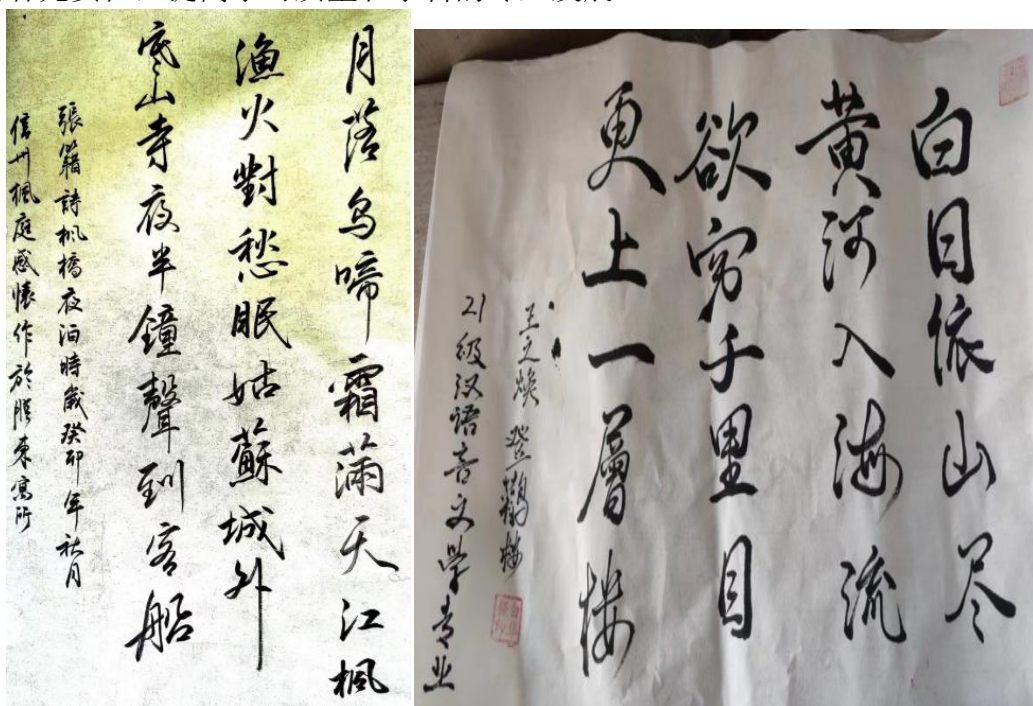 月落乌啼霜满天江楓
漁火對愁眠姑蘇城外
寒山寺夜半鐘聲到客船
張籍詩楓橋夜泊時歲癸卯年社月
信州楓庭感懷作於膠東寓所
白日依山尽
黄河入海流
欲穷千里目
更上一層楼
王之焕 登鹳楼
21级汉语言文学专业